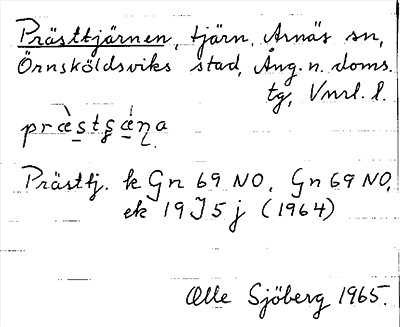 Prästtjärnen, tjärn, Arnäs sn,
Örnsköldsviks stad, Ång. n. doms.
tg, Vnrl. l.
præ̀stʂǽɳa
Prästtj. k Gn 69 NO, Gn 69 NO,
ek 19 J 5 j (1964)
Olle Sjöberg 1965.